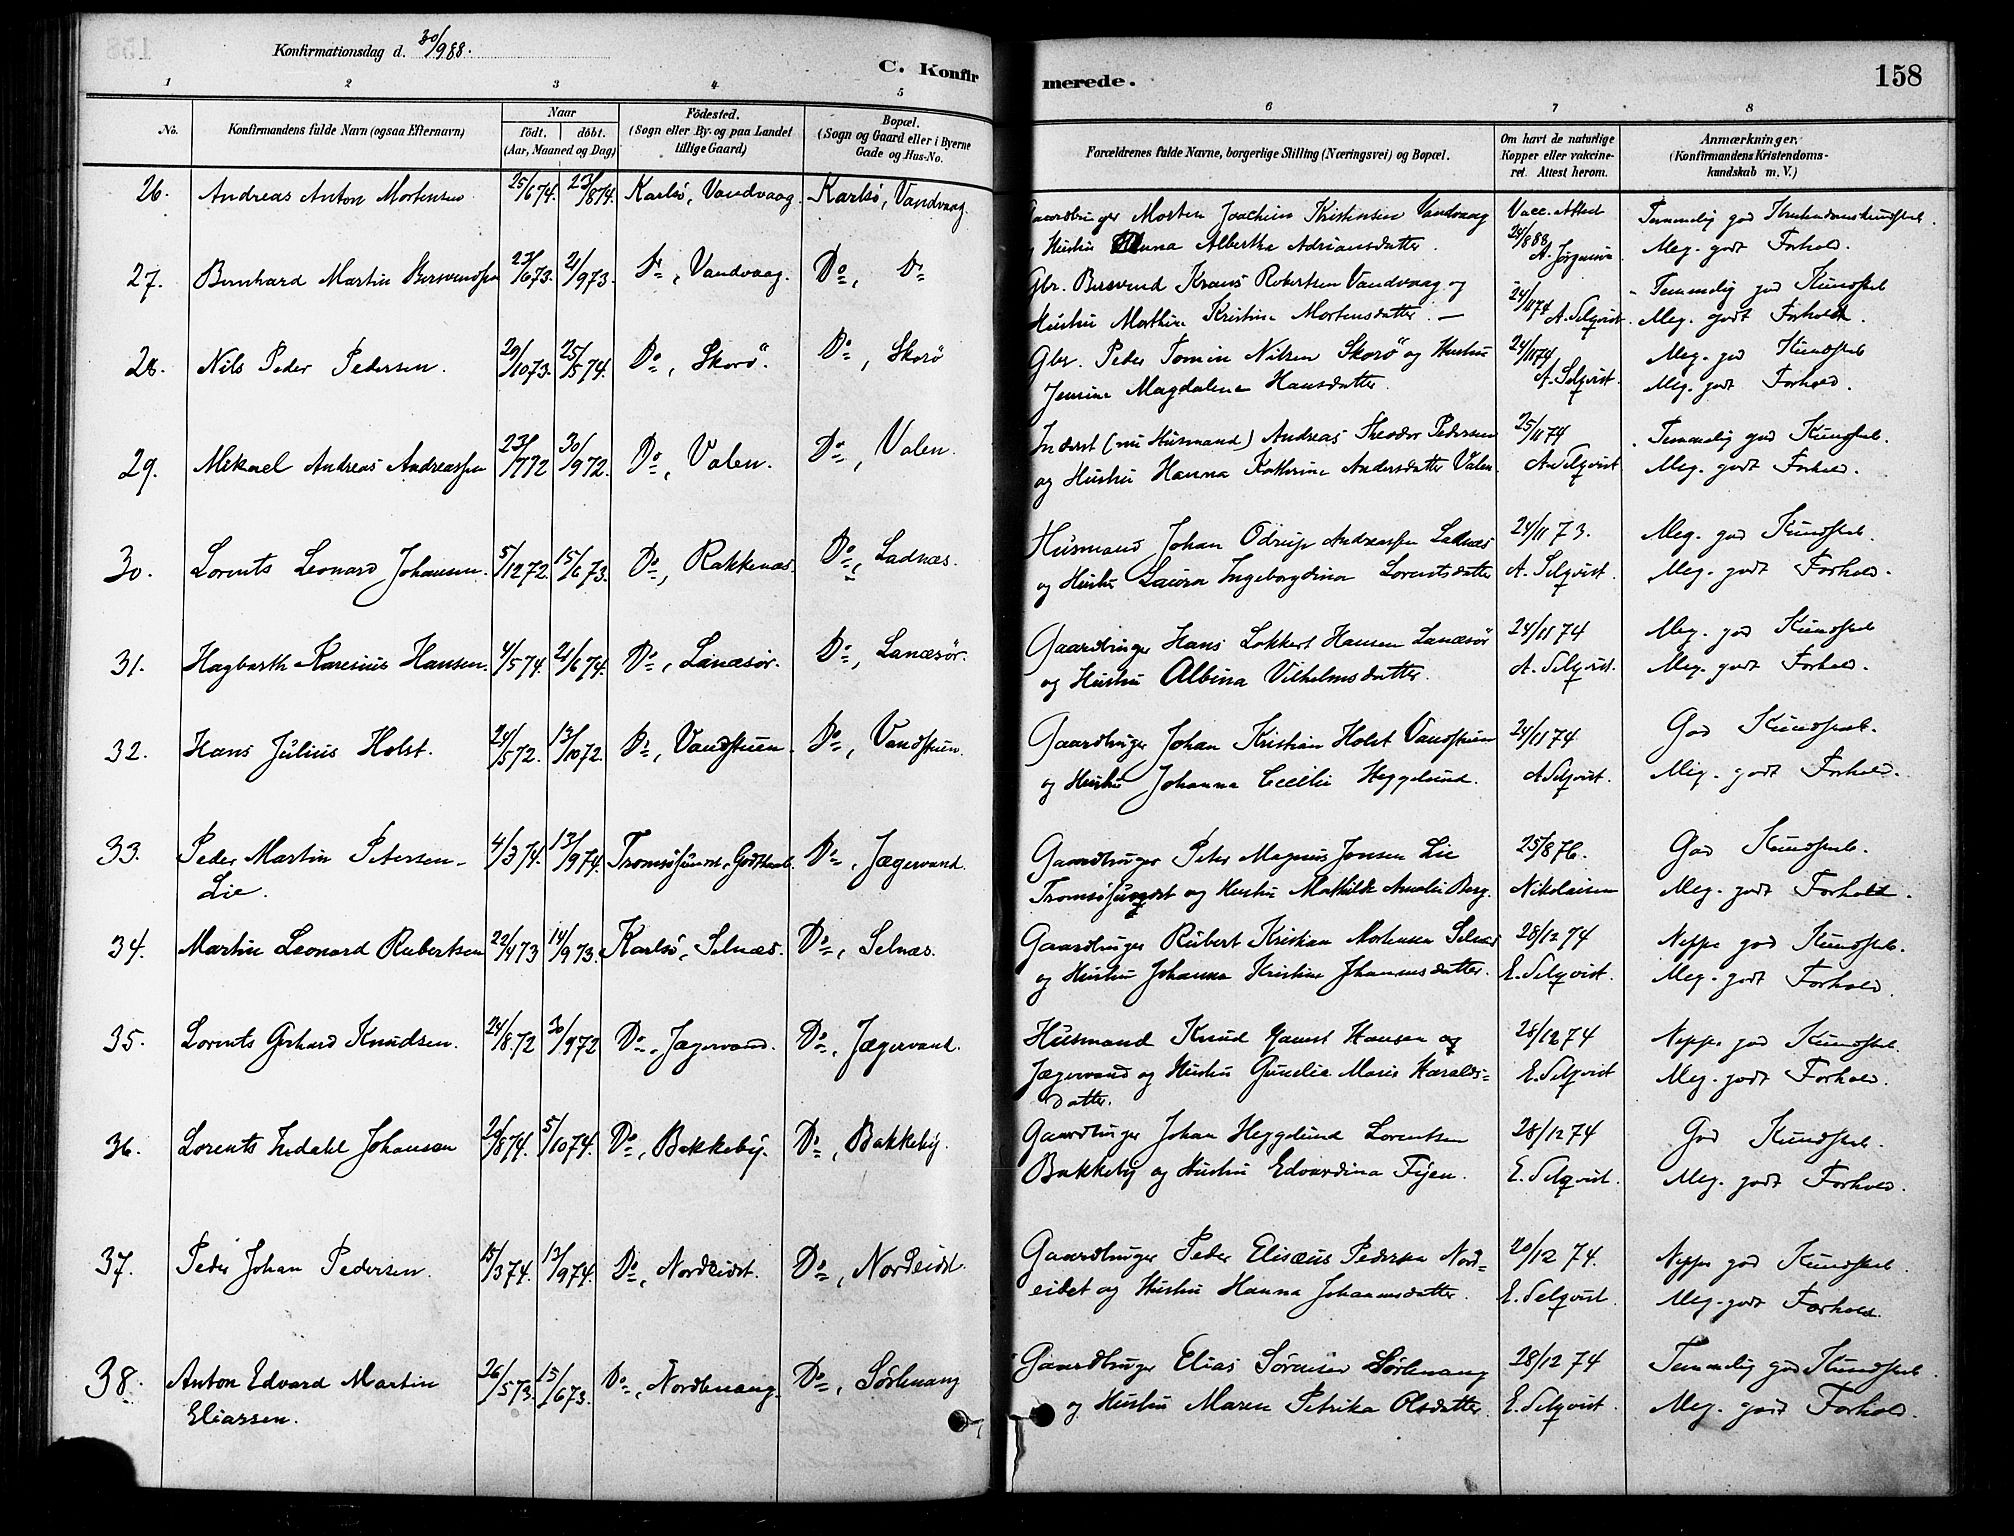 Konfirmationsdag d. 30/9 88.
C. Konfirmerede.
158
1 2 3 4 5 6 7 8
No.
Konfirmandens fulde Navn (ogsaa Efternavn)
Naar
födt. döbt.
(Aar, Maaned og Dag)
Födested.
(Sogn eller By- og paa Landet
tillige Gaard)
Bopæl.
(Sogn og Gaard eller i Byerne
Gade og Hus-No.
Forældrenes fulde Navne, borgerlige Stilling (Næringsvei) og Bopæl.
Om havt de naturlige
Kopper eller vakcine-
ret. Attest herom.
Anmærkninger,
(Konfirmandens Kristendoms-
kundskab m. V.)
26. Andreas Anton Mortensen 25/6 74. 23/8 74. Karlsö, Vandvaag. Karlsö, Vandvaag. Gaardbruger Morten Joachim Kristensen Vandvaag Vacc. Attest Temmelig god Kristendomskundskab.
og Hustru Anna Albertha Adriansdatter. 24/8 88 A. Jörgensen Meg. godt Forhold.
27. Bernhard Martin Bersvendsen 23/6 73. 21/9 73. Do, Vandvaag. Do, Do Gbr. Bersvend Kraus Robertsen Vandvaag og 24/11 74 Temmelig god Kundskab
Hustru Mathea Kristina Mortensdatter. — A. Selqvist. Meg. godt Forhold.
28. Nils Peder Pedersen. 29/10 73. 25/5 74. Do, Skorö. Do, Skorö Gbr. Peder Tomin Nilsen Skorö og Hustru 24/11 74 Meg. god Kundskab
Jensine Magdalena Hansdatter. A. Selqvist. Meg. godt Forhold.
29. Mikael Andreas Andreassen 23/7 72 30/9 72. Do, Valen. Do, Valen. Inderst (nu Husmand) Andreas Theodor Pedersen 25/11 74 Temmelig god Kundskab.
og Hustru Hanna Kathrine Andersdatter Valen. A. Selqvist Meg. godt Forhold.
30. Lorents Leonard Johansen. 5/12 72. 15/6 73. Do, Rakkenæs. Do, Ladnæs. Husmand Johan Odrup Andreassen Ladnæs 24/11 73. Meg. god Kundskab.
og Hustru Laura Ingeborgdina Lorentsdatter A. Selqvist. Meg. godt Forhold.
31. Hagbarth Karesius Hansen. 4/5 74. 21/6 74. Do, Lanæsör. Do, Lanæsör. Gaardbruger Hans Lokkert Hansen Lanæsör 24/11 74 Meg. god Kundskab
og Hustru Albina Vilhelmsdatter. A. Selqvist. Meg. godt Forhold.
32. Hans Julius Holst. 24/5 72. 13/10 72. Do, Vandstuen. Do, Vandstuen. Gaardbruger Johan Kristian Holst Vandstuen 24/11 74 God Kundskab.
og Hustru Johanna Cecilie Heggelund. A. Selqvist. Meg. godt Forhold.
33. Peder Martin Petersen 4/3 74. 13/9 74. Tromsösundet, Godthaab. Do, Jægervand. Gaardbruger Peter Magnus Jonsen Lie 25/8 76. God Kundskab.
Lie. Tromsösundet og Hustru Mathilde Amalie Berg. Nikolaisen Meg. godt Forhold.
34. Martin Leonard Rubertsen 22/4 73 14/9 73. Karlsö, Selnæs. Do, Selnæs. Gaardbruger Rubert Kristian Mortensen Selnæs 28/12 74 Neppe god Kundskab.
og Hustru Johanna Kristine Johannesdatter. E. Selqvist. Meg. godt Forhold.
35. Lorents Gerhard Knudsen. 24/8 72 30/9 72 Do, Jægervand. Do, Jægervand. Husmand Knud Hansen og 28/12 74 Neppe god Kundskab.
Jægervand og Hustru Gunelia Marie Haralds= E. Selqvist Meg. godt Forhold.
datter.
36. Lorents Indahl Johansen 24/8 74. 5/10 74. Do, Bakkeby. Do, Bakkeby. Gaardbruger Johan Heggelund Lorentsen 28/12 74 God Kundskab.
Bakkeby og Hustru Edvardina Fijen. E. Selqvist. Meg. godt Forhold.
37. Peder Johan Pedersen. 15/3 74. 13/9 74. Do, Nordeidet. Do, Nordeidet. Gaardbruger Peder Elisæus Pedersen Nord= 20/12 74. Neppe god Kundskab.
eidet og Hustru Hanna Johannesdatter. E. Selqvist. Meg. godt Forhold.
38. Anton Edvard Martin 26/5 73. 15/6 73. Do, Nordlenang. Do, Sörlenang Gaardbruger Elias Sörensen Sörlenang 28/12 74 Temmelig god Kundskab.
Eliassen. og Hustru Maren Petrika Olsdatter. E. Selqvist. Meg. godt Forhold.